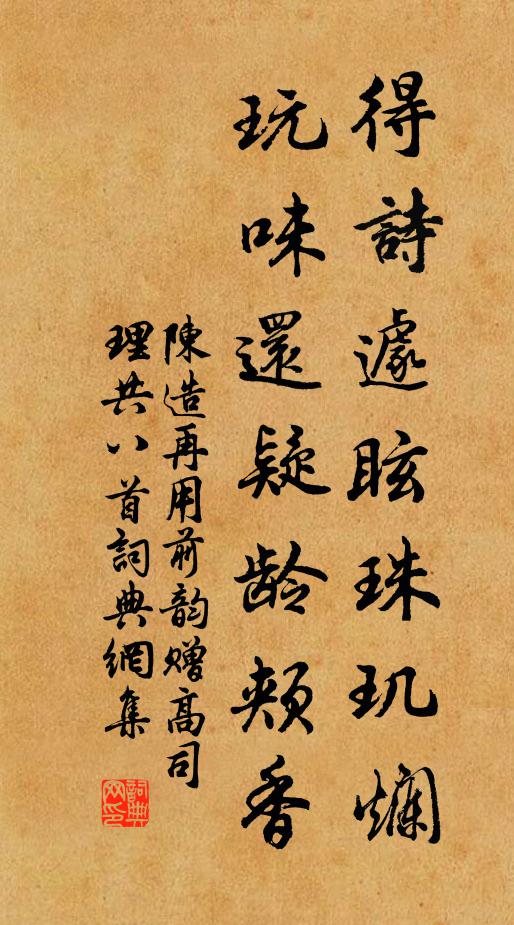 得詩遽眩珠玑爛
玩味還疑龄頰香
陳造再用前韵贈高司
理共八首詞典網集
詞典網印